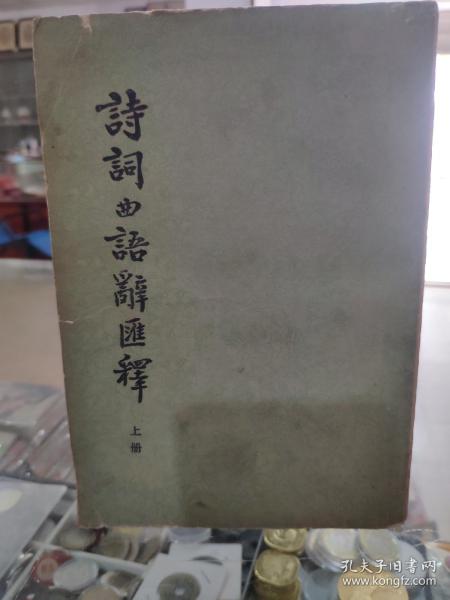 詩詞曲語辭匯釋
上册
孔夫子旧书网
www.kongfz.com